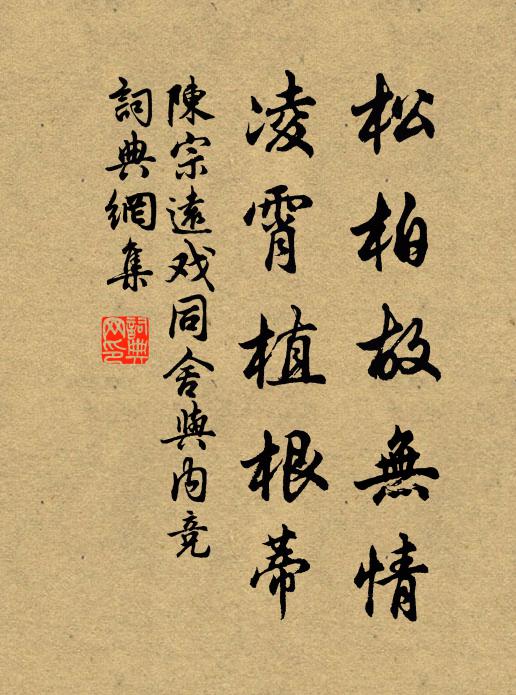 松柏故無情
凌霄植根蒂
陳宗遠戏同舍與内竞
詞典網集
詞典网印